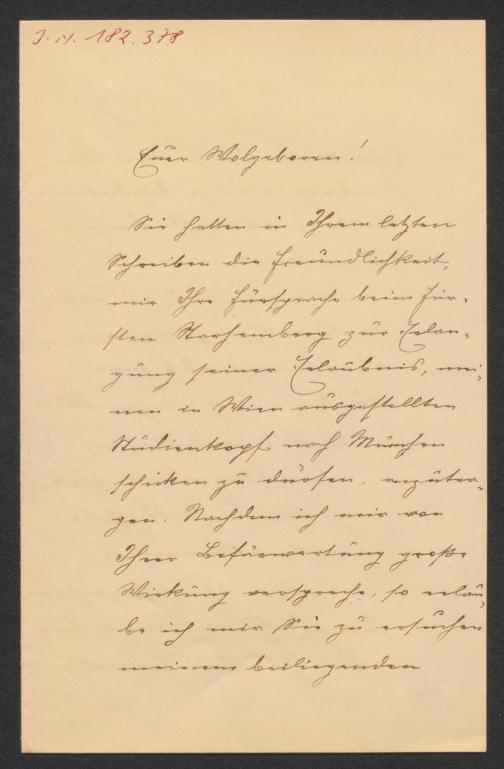 J. N. 182.378
Euer Wolgeboren!
Sie hatten in Ihrem letzten
Schreiben die Freundlichkeit,
mir Ihre Fürsprache beim Für-
sten Starhemberg zur Erlan-
gung seiner Erlaubnis, mei-
nen in Wien ausgestellten
Studienkopf nach München
schicken zu dürfen, anzutra-
gen. Nachdem ich mir von
Ihrer Befürwortung große
Wirkung verspreche, so erlau-
be ich mir Sie zu ersuchen
meinem beiliegenden